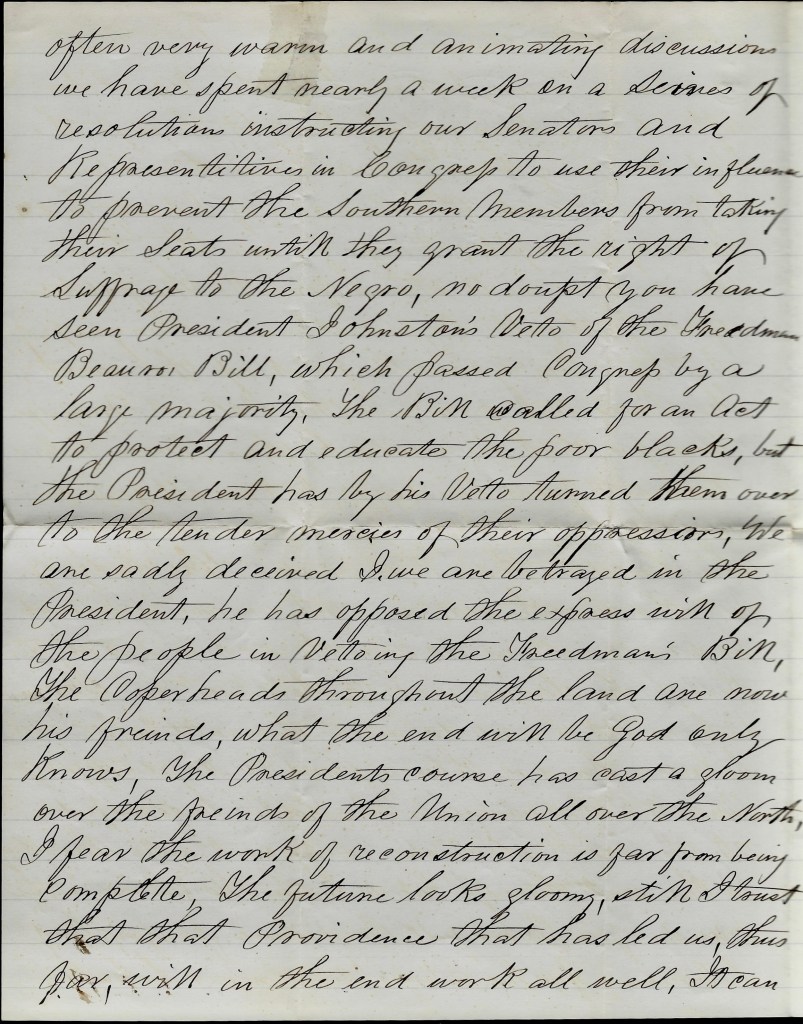 often very warm and animating discussions
we have spent nearly a week on a Seires of
resolutions instructing our Senators and
Representitives in Congress to use their influence
to prevent the Southern Members from taking
their Seats untill they grant the right of
Suffrage to the Negro, no doupt you have
seen President Johnston's Veto of the Freedmen
Beauroi Bill, which passed Congress by a
large majority. The Bill called for an Act
to protect and educate the poor blacks, but
the President has by his Veto turned them over
to the tender mercies of their oppressiors, We
are sadly deceived & we are betrayed in the
President, he has opposed the express will of
the people in Vetoing the Freedman's Bill,
The Coperheads throughout the land are now
his freinds, what the end will be God only
Knows, The Presidents course has cast a gloom
over the freinds of the Union all over the North,
I fear the work of reconstruction is far from being
Complete, The future looks gloomy, still I trust
that that Providence that has led us, thus
far, will in the end work all well, It can